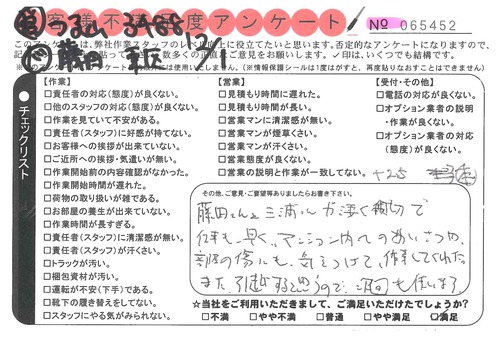 お客様不満足度アンケート
No 065452
このアンケートは、弊社作業スタッフのレベル向上に役立てたいと思います。否定的なアンケートになりますので、
数多くの正直なご意見をお願いします。✓印は、いくつでも結構です。
(※情報保護シールは1度はがすと、再度貼りなおすことはできません)
チェックリスト
【作業】
□責任者の対応(態度)が良くない。
□他のスタッフの対応(態度)が良くない。
□作業を見ていて不安がある。
□責任者(スタッフ)に好感が持てない。
□お客様への挨拶が出来ていない。
□ご近所への挨拶・気遣いが無い。
□作業開始前の内容確認がなかった。
□作業開始時間が遅れた。
□荷物の取り扱いが雑である。
□お部屋の養生が出来ていない。
□作業時間が長すぎる。
□責任者(スタッフ)に清潔感が無い。
□責任者(スタッフ)が汗くさい。
□トラックが汚い。
□梱包資材が汚い。
□運転が不安(下手)である。
□靴下の履き替えをしてない。
□スタッフにやる気がみられない。
【営業】
□見積もり時間に遅れた。
□見積もり時間が長い。
□営業マンに清潔感が無い。
□営業マンが煙草くさい。
□営業マンが汗くさい。
□営業態度が良くない。
□営業の説明と作業が一致してない。
【受付・その他】
□電話の対応が良くない。
□オプション業者の説明
・作業が良くない。
□オプション業者の対応
(態度)が良くない。
+25
その他、ご意見・ご要望等ありましたらお書き下さい。
藤田さんと三浦さんが凄く親切で
仕事も早く、マンション内へのあいさつや、
部屋の傷にも、気をつけて、作業してくれた。
また引越すると思うので、次回も使います。
☆当社をご利用いただきまして、ご満足いただけたでしょうか?
□不満 □やや不満 □普通 □やや満足 ☑満足